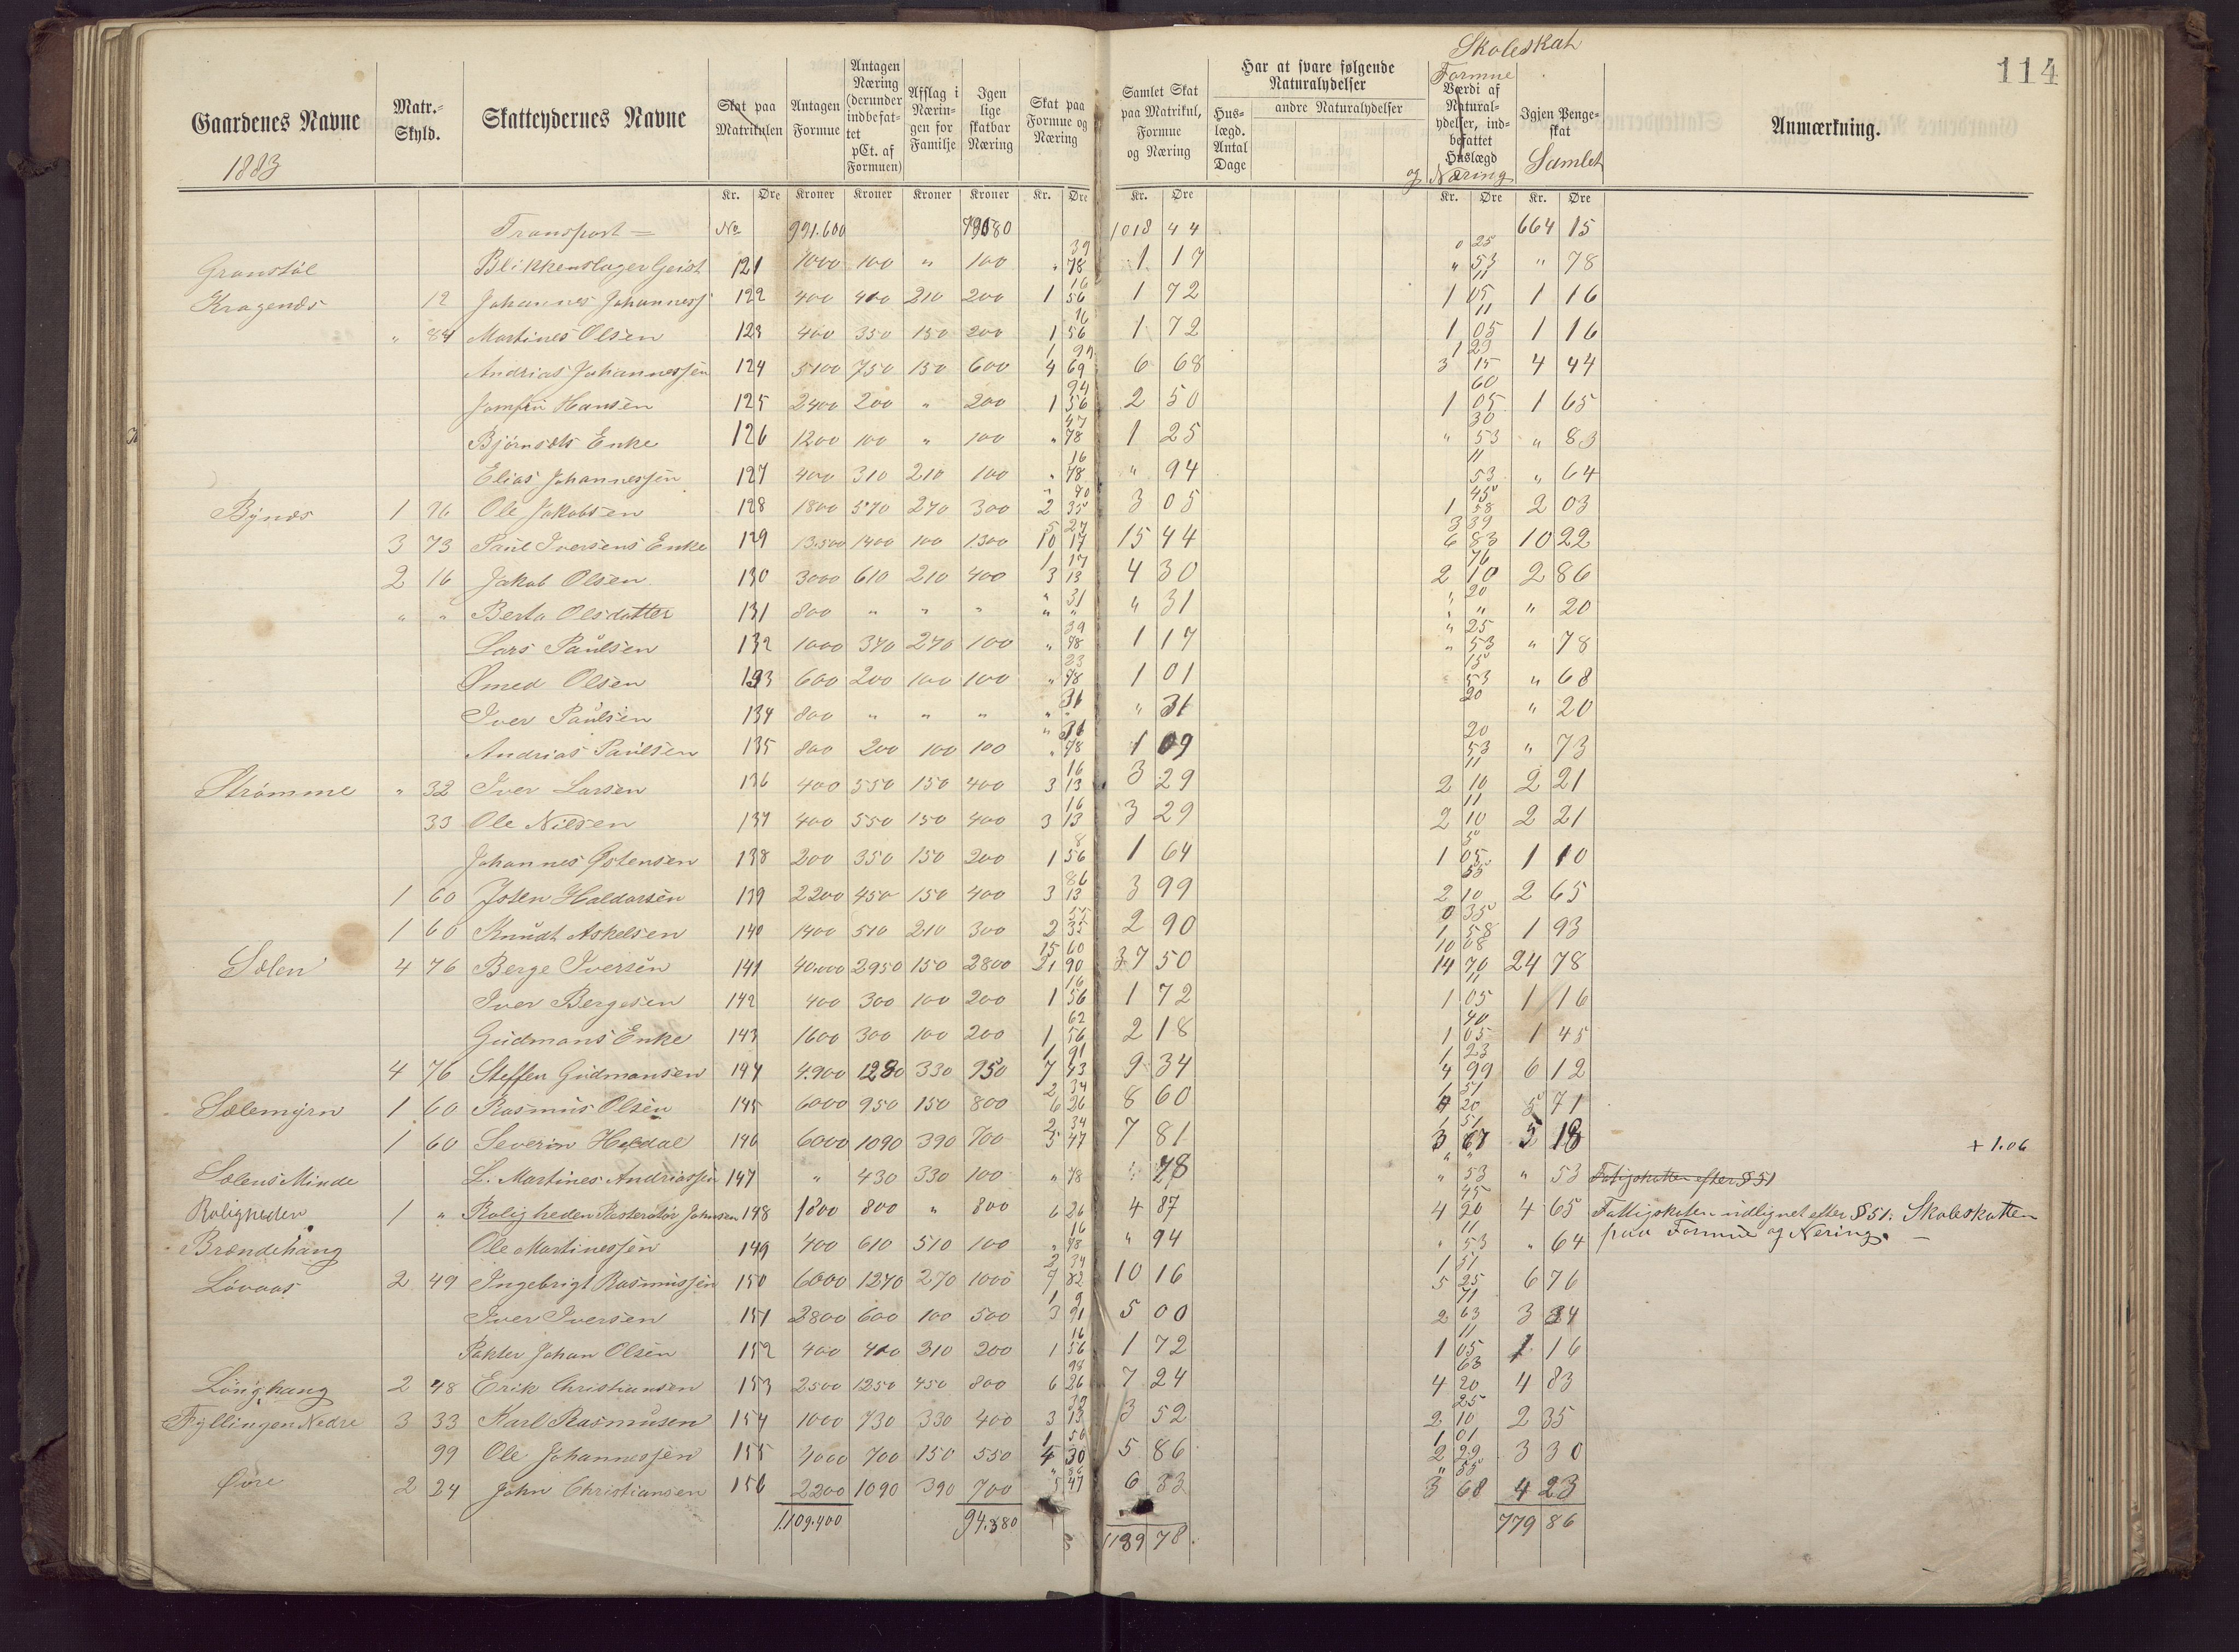 114
Skoleskat
Gaardenes Navne
1883
Matr.-Skyld.
Skatteydernes Navne
Skat paa Matrikulen
Antagen Formue
Antagen Næring (derunder indbefattet pCt. af Formuen)
Afslag i Næringen for Familie
Igen lige skatbar Næring
Skat paa Formue og Næring
Samlet Skat paa Matrikul, Formue og Næring
Har at svare følgende Naturalydelser
Huslægd. Antal Dage
andre Naturalydelser
Formue
Værdi af Naturalydelser, indbefattet Huslægd
og Næring
Igjen Pengeskat
Samlet
Anmærkning.
Kr. Øre Kroner Kroner Kroner Kroner Kr. Øre Kr. Øre Kr. Øre Kr. Øre
Transport = No 991.600 1018 44 664 15
Granstøl Blikkenslager Geist 121 1000 100 " 100 " 39 78 1 17 0 25 " 53 " 78
Kragenæs 12 Johannes Johanness 122 400 400 210 200 16 1 56 1 72 11 1 05 1 16
" 84 Martines Olsen 123 400 350 150 200 16 1 56 1 72 11 1 05 1 16
Andrias Johannessen 124 5100 750 150 600 1 99 4 69 6 68 1 29 3 15 4 44
Jomfru Hansen 125 2400 200 " 200 94 1 56 2 50 60 1 05 1 65
Bjørnsets Enke 126 1200 100 " 100 47 " 78 1 25 30 " 53 " 83
Elias Johannessen 127 400 310 210 100 16 " 78 " 94 11 53 " 64
Bynæs 1 96 Ole Jakobsen 128 1800 570 270 300 " 70 2 35 3 05 45 1 58 2 03
3 73 Paul Iversens Enke 129 13.500 1400 100 1300 5 27 10 17 15 44 3 39 6 83 10 22
2 16 Jakob Olsen 130 3000 610 210 400 1 17 3 13 4 30 76 2 10 2 86
" " Berta Olsdatter 131 800 " " " " 31 " " " 31 " 20 " " " 20
Lars Paulsen 132 1000 370 270 100 39 " 78 1 17 " 25 " 53 " 78
Smed Olsen 133 600 200 100 100 23 " 78 1 01 15 53 " 68
Iver Paulsen 134 800 " " " 31 " " " 31 20 " 20
Andrias Paulsen 135 800 200 100 100 " 31 " 78 1 09 20 53 " 73
Strømme " 32 Iver Larsen 136 400 550 150 400 16 3 13 3 29 11 2 10 2 21
33 Ole Nilsen 137 400 550 150 400 16 3 13 3 29 11 2 10 2 21
Johannes Østensen 138 200 350 150 200 8 1 56 1 64 5 1 05 1 10
1 60 Josen Haldorsen 139 2200 450 150 400 86 3 13 3 99 55 2 10 2 65
1 60 Knudt Askelsen 140 1400 510 210 300 55 2 35 2 90 0 35 1 58 1 93
Sælen 4 76 Berge Iversen 141 40.000 2950 150 2800 15 60 21 90 37 50 10 08 14 70 24 78
Iver Bergesen 142 400 300 100 200 16 1 56 1 72 11 1 05 1 16
Gudmans Enke 143 1600 300 100 200 62 1 56 2 18 40 1 05 1 45
4 76 Steffen Gudmansen 144 4.900 1280 330 950 1 91 7 43 9 34 1 23 4 99 6 12
Sælemyrn 1 60 Rasmus Olsen 145 6000 950 150 800 2 34 6 26 8 60 1 51 4 20 5 71
1 60 Severin Haldal 146 6000 1090 390 700 2 34 5 47 7 81 1 51 3 67 5 18 + 1.06
Sælens Minde L. Martines Andriassen 147 " 430 330 100 " 78 " 78 " " " 53 " 53 Fatigskatten efter § 51
Roligheden 1 " Roligheden Johnsen 148 1800 800 " 800 6 26 4 87 45 4 20 4 65 Fattigskaten udlignet efter § 51. Skoleskatten
paa Formue og Nering.
Brændehaug Ole Martinessen 149 400 610 510 100 16 " 78 " 94 11 " 53 " 64
Løvaas 2 49 Ingebrigt Rasmussen 150 6000 1270 270 1000 2 34 7 82 10 16 1 51 5 25 6 76
Iver Iversen 151 2800 600 100 500 1 9 3 91 5 00 71 2 63 3 34
Pakter Johan Olsen 152 400 410 210 200 16 1 56 1 72 11 1 05 1 16
Lønghaug 2 48 Erik Christiansen 153 2500 1250 450 800 98 6 26 7 24 63 4 20 4 83
Fyllingen Nedre 3 33 Karl Rasmusen 154 1000 730 330 400 39 3 13 3 52 25 2 10 2 35
99 Ole Johannessen 155 4000 700 150 550 1 56 4 30 5 86 1 01 2 29 3 30
Øvre 2 24 John Christiansen 156 2200 1090 390 700 " 86 5 47 6 33 " 55 3 68 4 23
1.109.400 94.380 1139 78 779 86